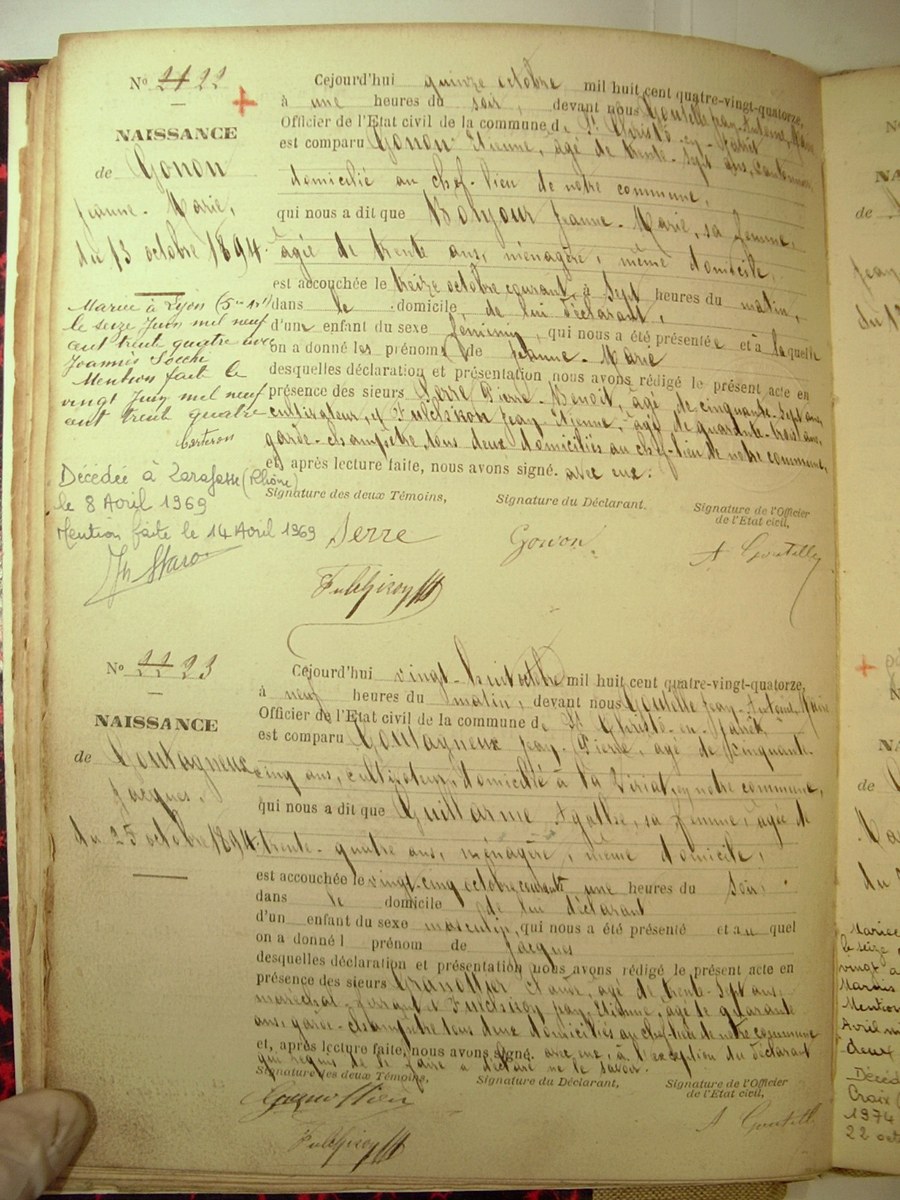 N° 21 22
NAISSANCE
de Gonon
Jeanne-Marie,
du 13 octobre 1894.
Mariée à Lyon (5me Art)
le seize Juin mil neuf
cent trente quatre avec
Joannès Socche
Mention faite le
vingt Juin mil neuf
cent trente quatre
Décédée à (Rhône)
le 8 Avril 1969
Mention faite le 14 Avril 1969
Cejourd'hui quinze octobre mil huit cent quatre-vingt-quatorze,
à une heures du soir, devant nous Goutelle Jean-Antoine, Maire
Officier de l'Etat civil de la commune de St Christo-en-Jarêt
est comparu Gonon Etienne, âgé de trente-sept ans, cantonnier,
domicilié au chef-lieu de notre commune,
qui nous a dit que Bonjour Jeanne-Marie, sa femme,
âgée de trente ans, ménagère, même domicile,
est accouchée le treize octobre courant, à sept heures du matin,
dans le domicile, de lui déclarant,
d'un enfant du sexe féminin, qui nous a été présentée et à laquelle
on a donné les prénoms de Jeanne-Marie
desquelles déclaration et présentation nous avons rédigé le présent acte en
présence des sieurs Serre Pierre-Benoit, âgé de cinquante-sept ans,
cultivateur, et Fulchiron Jean-Etienne, âgé de quarante-trois ans,
garde-champêtre, tous deux domiciliés au chef-lieu de notre commune,
et, après lecture faite, nous avons signé. avec eux.
Signature des deux Témoins, Signature du Déclarant. Signature de l'Officier
de l'Etat civil,
Serre Gonon A Goutelle
Fulchiron
N° 22 23
NAISSANCE
de Goutagneux
Jacques,
du 25 octobre 1894.
Cejourd'hui vingt-huit octobre mil huit cent quatre-vingt-quatorze,
à neuf heures du matin, devant nous Goutelle Jean-Antoine, Maire
Officier de l'Etat civil de la commune de St Christo-en-Jarêt
est comparu Goutagneux Jean-Pierre, âgé de cinquante-
cinq ans, cultivateur, domicilié à la notre commune,
qui nous a dit que Guillarme Agathe, sa femme, âgée de
trente-quatre ans, ménagère, même domicile,
est accouchée le vingt-cinq octobre courant à une heures du soir,
dans le domicile de lui déclarant
d'un enfant du sexe masculin, qui nous a été présenté et au quel
on a donné l prénom de Jacques
desquelles déclaration et présentation nous avons rédigé le présent acte en
présence des sieurs Claude, âgé de trente-sept ans,
maréchal-ferrant et Fulchiron Jean-Etienne, âgé de quarante
ans, garde-champêtre tous deux domiciliés au chef-lieu de notre commune
et, après lecture faite, nous avons signé. avec eux, à l'exception du déclarant
qui requis de le faire a déclaré ne le savoir.
Signature des deux Témoins, Signature du Déclarant, Signature de l'Officier
de l'Etat civil,
A Goutelle
Fulchiron